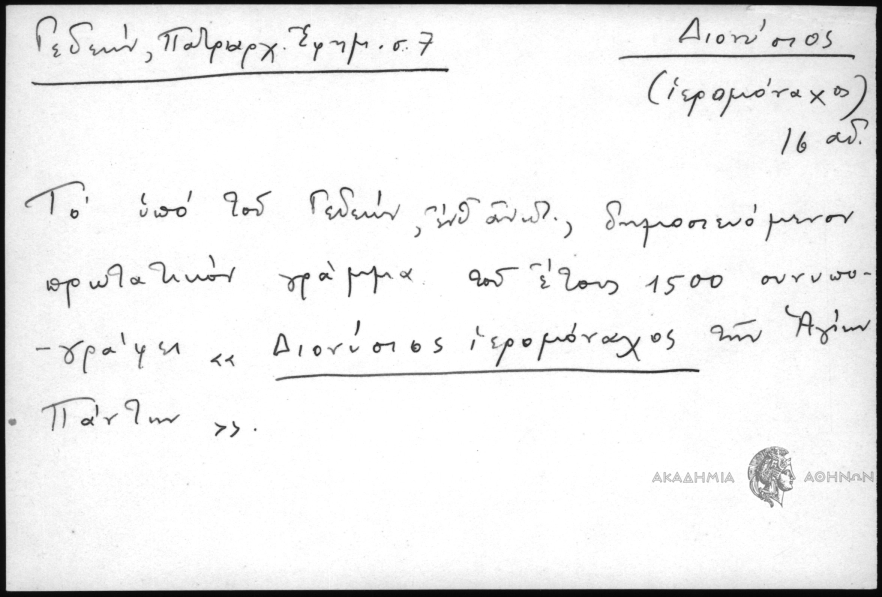 Γεδεών, Πατριαρχ. Ἐφημ. σ. 7
Διονύσιος
(ἱερομόναχος)
16 αἰ.
Τὸ ὑπὸ τοῦ Γεδεών, ἔνθ' ἀνωτ., δημοσιευόμενον
πρωτατικὸν γράμμα τοῦ ἔτους 1500 συνυπο-
-γράφει «Διονύσιος ἱερομόναχος τῶν Ἁγίων
Πάντων».
ΑΚΑΔΗΜΙΑ ΑΘΗΝΩΝ